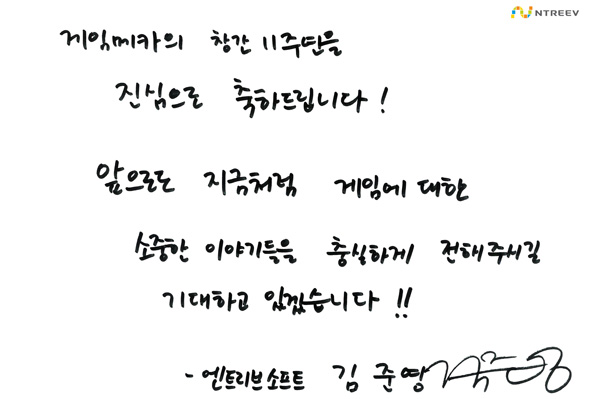 NTREEV
게임메카의 창간 11주년을
진심으로 축하드립니다!
앞으로도 지금처럼 게임에 대한
소중한 이야기들을 충실하게 전해주시길
기대하고 있겠습니다!!
- 엔트리브소프트 김준영